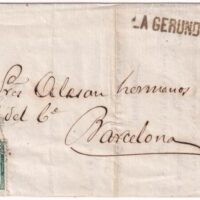 LA GERUND
Pres Alasan hermanos
del Co
Barcelona